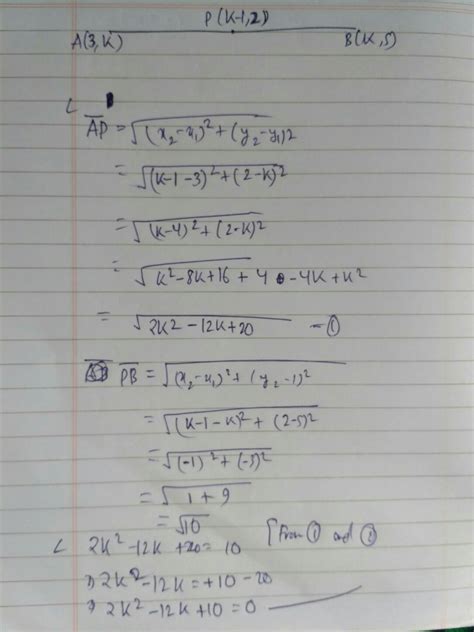 P(K-1,2)
A(3,K) B(K,5)
AP = √(x₂-x₁)²+(y₂-y₁)2
= √(K-1-3)²+(2-K)²
= √(K-4)²+(2-K)²
= √K²-8K+16+4-4K+K²
= √2K²-12K+20 -①
PB = √(x₂-x₁)²+(y₂-1)²
= √(K-1-K)²+(2-5)²
= √(-1)²+(-3)²
= √1+9
= √10
2K²-12K+20=10 [From ① and ②
⇒ 2K²-12K=+10-20
⇒ 2K²-12K+10=0